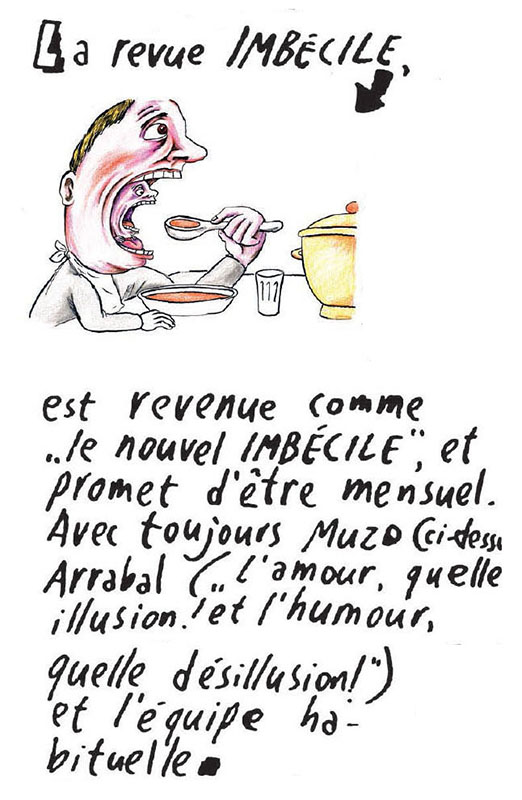 La revue IMBÉCILE,
est revenue comme
„le nouvel IMBÉCILE“, et
promet d'être mensuel.
Avec toujours Muzo (ci-dessu
Arrabal („l'amour, quelle
illusion! et l'humour,
quelle désillusion!“)
et l'équipe ha-
bituelle.